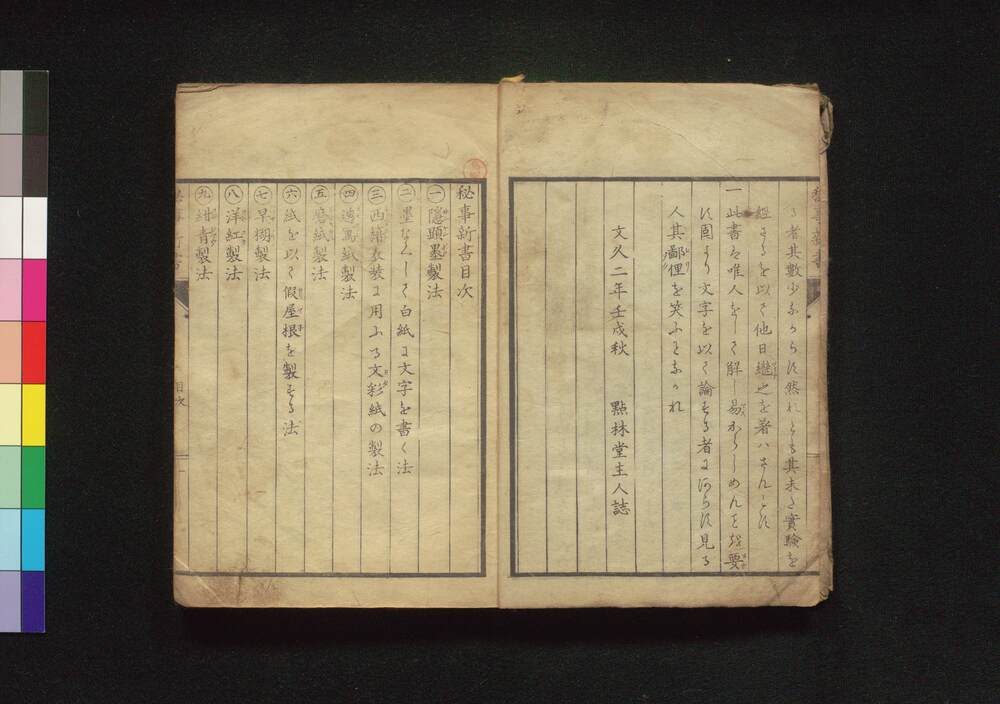 る者其數少からず然れども其未た實驗を
經ざるを以て他日繼之を著ハさんとす
一此書は唯人をして解し易からしめんを要
す固より文字を以て論ずる者にあらず見る
人其鄙俚を笑ふことなかれ
文久二年壬戌秋 點林堂主人誌
秘事新書目次
㊀隠顕墨製法
㊁墨なくして白紙に文字を書く法
㊂西籍表装に用ふる文彩紙の製法
㊃透寫紙製法
㊄磨紙製法
㊅紙を以て假屋根を製する法
㊆早糊製法
㊇洋紅製法
㊈紺青製法
目次